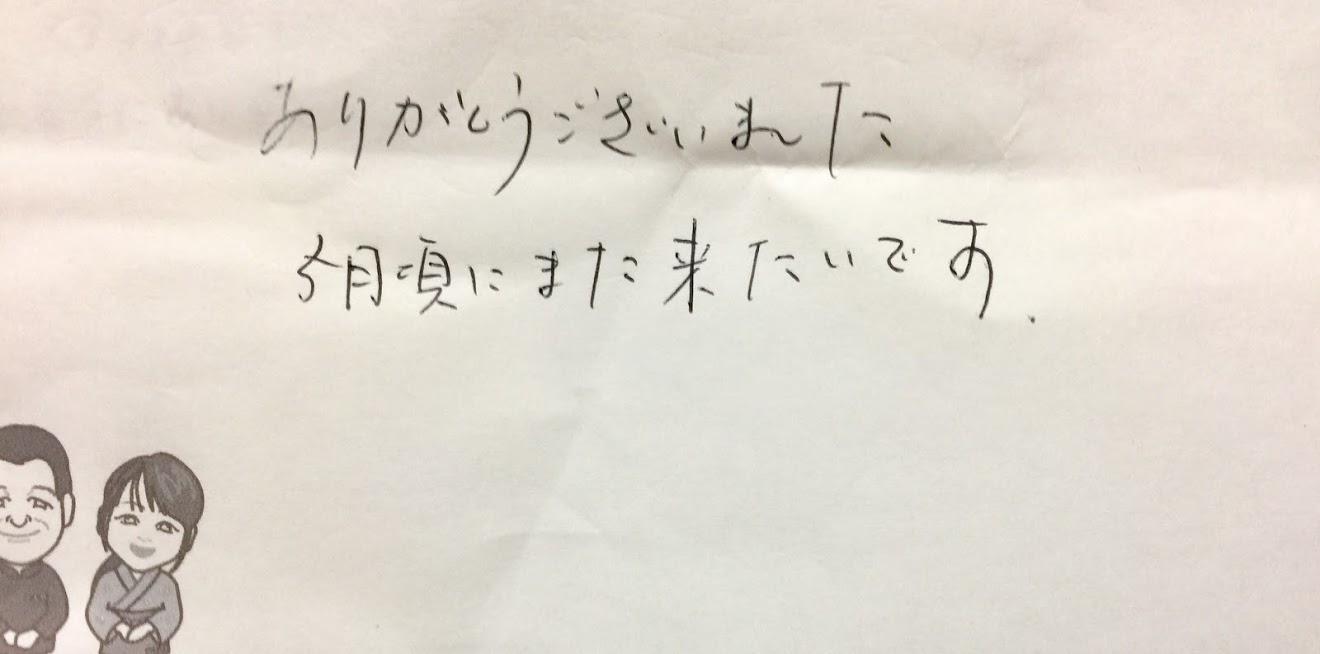 ありがとうございました
5月頃にまた来たいです.